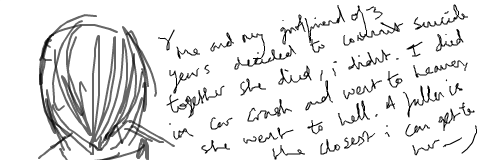 me and my girlfriend of 3
years decided to commit suicide
together she died, i didnt. I died
in car crash and went to heaven,
she went to hell. A fuller is
the closest i can get to
her